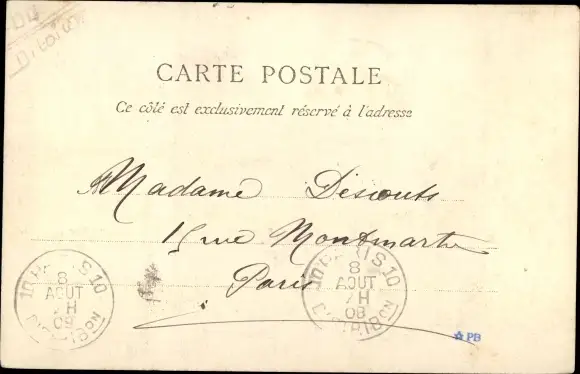 CARTE POSTALE
Ce côté est exclusivement réservé à l'adresse
Madame Descouts
15 rue Montmartre
Paris
10 PARIS 10
8
AOUT
7H
09
DISTRIBON
10 PARIS 10
8
AOUT
7H
08
DISTRIBON
PB